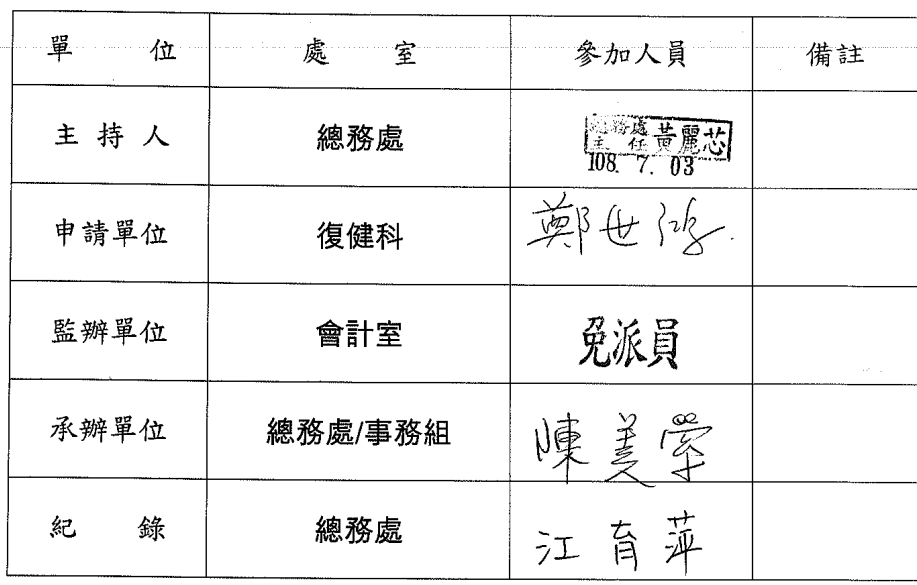 單 位 處 室 參加人員 備註
主持人 總務處 總務處主任 黃麗芯
108. 7. 03
申請單位 復健科 鄭世鴻
監辦單位 會計室 免派員
承辦單位 總務處/事務組 陳美
紀 錄 總務處 江育萍